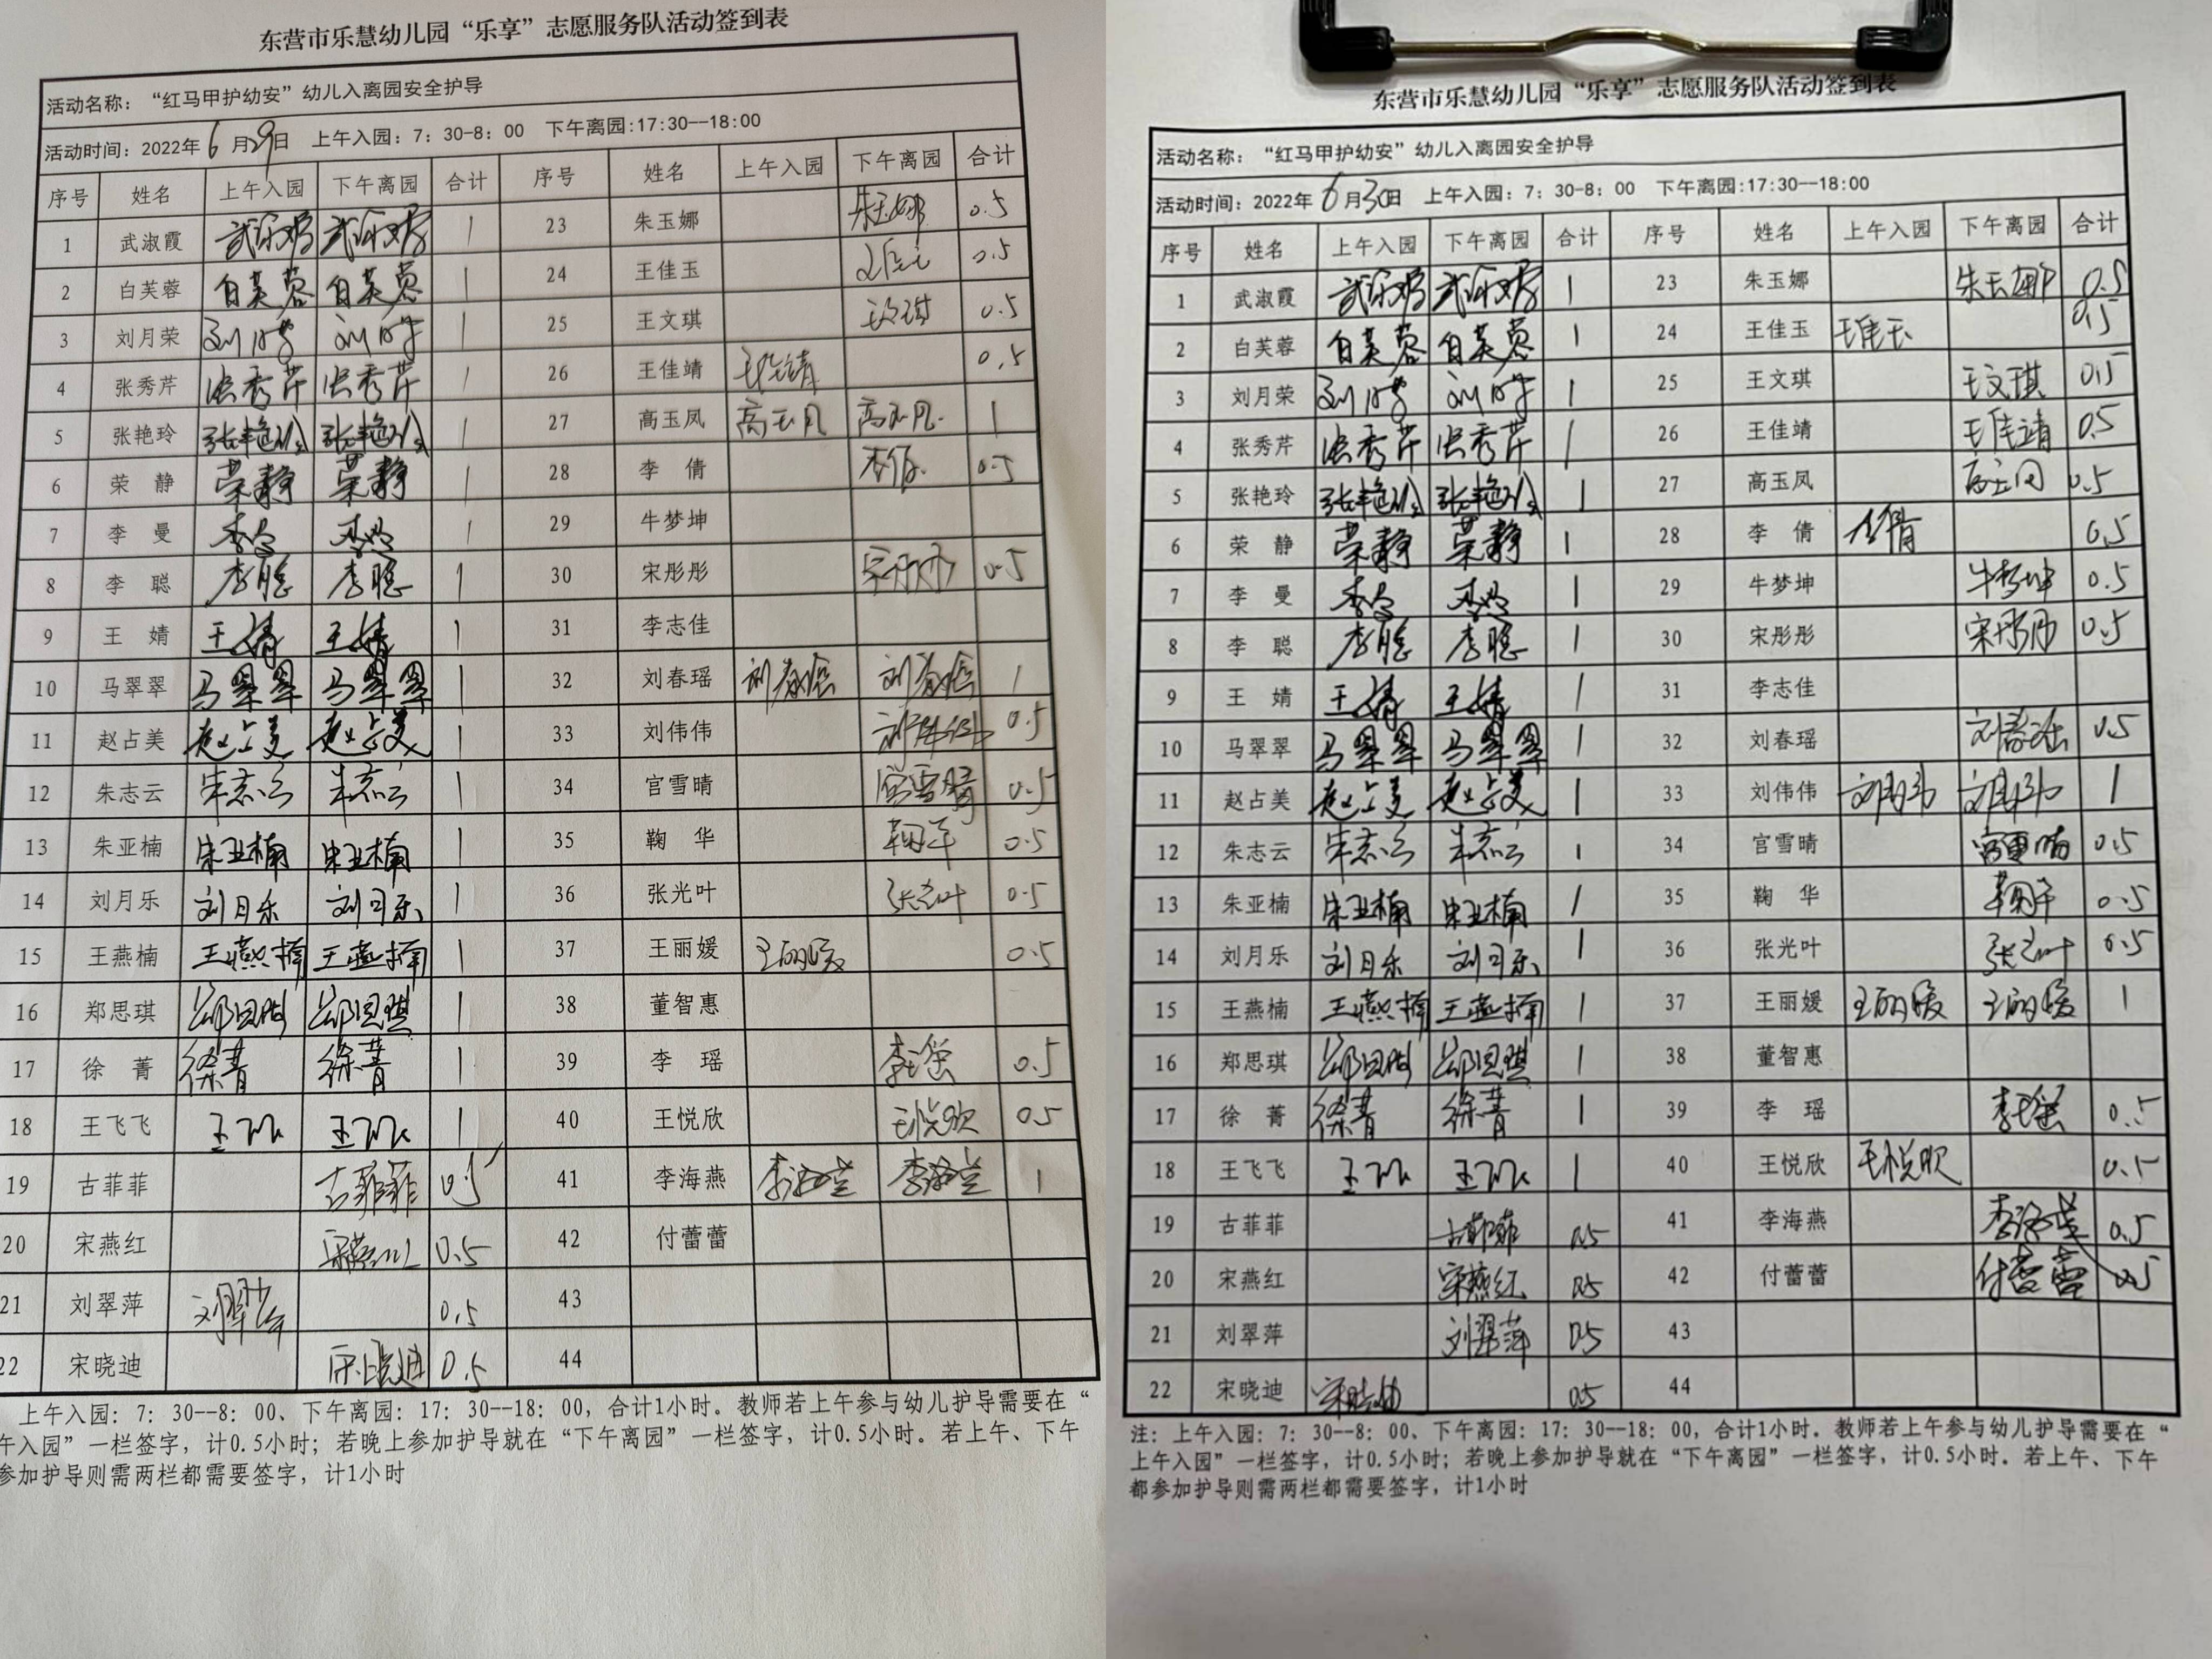 东营市乐慧幼儿园“乐享”志愿服务队活动签到表
活动名称：“红马甲护幼安”幼儿入离园安全护导
活动时间：2022年6月29日 上午入园：7：30-8：00 下午离园:17:30--18:00
序号 姓名 上午入园 下午离园 合计 序号 姓名 上午入园 下午离园 合计
1 武淑霞 1 23 朱玉娜 朱玉娜 0.5
2 白芙蓉 白芙蓉 白芙蓉 1 24 王佳玉 0.5
3 刘月荣 1 25 王文琪 王文琪 0.5
4 张秀芹 张秀芹 张秀芹 1 26 王佳靖 王佳靖 0.5
5 张艳玲 张艳玲 张艳玲 1 27 高玉凤 高玉凤 高玉凤 1
6 荣静 荣静 荣静 1 28 李倩 李倩 0.5
7 李曼 李曼 李曼 1 29 牛梦坤
8 李聪 李聪 李聪 1 30 宋彤彤 宋彤彤 0.5
9 王婧 王婧 王婧 1 31 李志佳
10 马翠翠 马翠翠 马翠翠 1 32 刘春瑶 刘春瑶 刘春瑶 1
11 赵占美 赵占美 赵占美 1 33 刘伟伟 刘伟伟 0.5
12 朱志云 朱志云 朱志云 1 34 宫雪晴 宫雪晴 0.5
13 朱亚楠 朱亚楠 朱亚楠 1 35 鞠华 鞠华 0.5
14 刘月乐 刘月乐 刘月乐 1 36 张光叶 张光叶 0.5
15 王燕楠 王燕楠 王燕楠 1 37 王丽媛 王丽媛 0.5
16 郑思琪 郑思琪 郑思琪 1 38 董智惠
17 徐菁 徐菁 徐菁 1 39 李瑶 李瑶 0.5
18 王飞飞 王飞飞 王飞飞 1 40 王悦欣 王悦欣 0.5
19 古菲菲 古菲菲 0.5 41 李海燕 李海燕 李海燕 1
20 宋燕红 宋燕红 0.5 42 付蕾蕾
21 刘翠萍 刘翠萍 0.5 43
22 宋晓迪 宋晓迪 0.5 44
上午入园：7：30--8：00、下午离园：17：30--18：00，合计1小时。教师若上午参与幼儿护导需要在“
午入园”一栏签字，计0.5小时；若晚上参加护导就在“下午离园”一栏签字，计0.5小时。若上午、下午
参加护导则需两栏都需要签字，计1小时
东营市乐慧幼儿园“乐享”志愿服务队活动签到表
活动名称：“红马甲护幼安”幼儿入离园安全护导
活动时间：2022年6月30日 上午入园：7：30-8：00 下午离园:17:30--18:00
序号 姓名 上午入园 下午离园 合计 序号 姓名 上午入园 下午离园 合计
1 武淑霞 1 23 朱玉娜 朱玉娜 0.5
2 白芙蓉 白芙蓉 白芙蓉 1 24 王佳玉 王佳玉 0.5
3 刘月荣 1 25 王文琪 王文琪 0.5
4 张秀芹 张秀芹 张秀芹 1 26 王佳靖 王佳靖 0.5
5 张艳玲 张艳玲 张艳玲 1 27 高玉凤 高玉凤 0.5
6 荣静 荣静 荣静 1 28 李倩 李倩 0.5
7 李曼 李曼 李曼 1 29 牛梦坤 牛梦坤 0.5
8 李聪 李聪 李聪 1 30 宋彤彤 宋彤彤 0.5
9 王婧 王婧 王婧 1 31 李志佳
10 马翠翠 马翠翠 马翠翠 1 32 刘春瑶 刘春瑶 0.5
11 赵占美 赵占美 赵占美 1 33 刘伟伟 刘伟伟 刘伟伟 1
12 朱志云 朱志云 朱志云 1 34 宫雪晴 宫雪晴 0.5
13 朱亚楠 朱亚楠 朱亚楠 1 35 鞠华 鞠华 0.5
14 刘月乐 刘月乐 刘月乐 1 36 张光叶 张光叶 0.5
15 王燕楠 王燕楠 王燕楠 1 37 王丽媛 王丽媛 王丽媛 1
16 郑思琪 郑思琪 郑思琪 1 38 董智惠
17 徐菁 徐菁 徐菁 1 39 李瑶 李瑶 0.5
18 王飞飞 王飞飞 王飞飞 1 40 王悦欣 王悦欣 0.5
19 古菲菲 古菲菲 0.5 41 李海燕 李海燕 0.5
20 宋燕红 宋燕红 0.5 42 付蕾蕾 付蕾蕾 0.5
21 刘翠萍 刘翠萍 0.5 43
22 宋晓迪 宋晓迪 0.5 44
注：上午入园：7：30--8：00、下午离园：17：30--18：00，合计1小时。教师若上午参与幼儿护导需要在“
上午入园”一栏签字，计0.5小时；若晚上参加护导就在“下午离园”一栏签字，计0.5小时。若上午、下午
都参加护导则需两栏都需要签字，计1小时